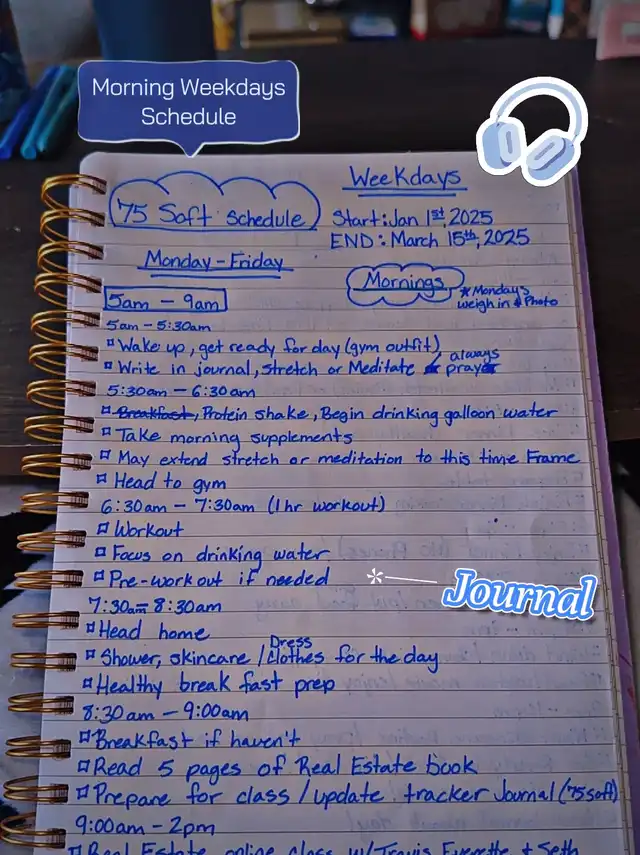 Morning Weekdays
Schedule
Weekdays
75 Soft Schedule
Start: Jan 1st, 2025
END: March 15th, 2025
Monday-Friday
Mornings
5am - 9am
* Mondays
weigh in & Photo
5am - 5:30am
Wake up, get ready for day (gym outfit)
Write in journal, stretch or Meditate always pray
5:30am - 6:30am
Breakfast, Protein shake, Begin drinking galloon water
Take morning supplements
May extend stretch or meditation to this time Frame
Head to gym
6:30am - 7:30am (1 hr workout)
Workout
Focus on drinking water
Pre-workout if needed
Journal
7:30am - 8:30am
Head home
Shower, skincare / Dress clothes for the day
Healthy break fast prep
8:30am - 9:00am
Breakfast if haven't
Read 5 pages of Real Estate book
Prepare for class / update tracker Journal (75 soft)
9:00am - 2pm
Real Estate online class w/ Travis Everette + Seth